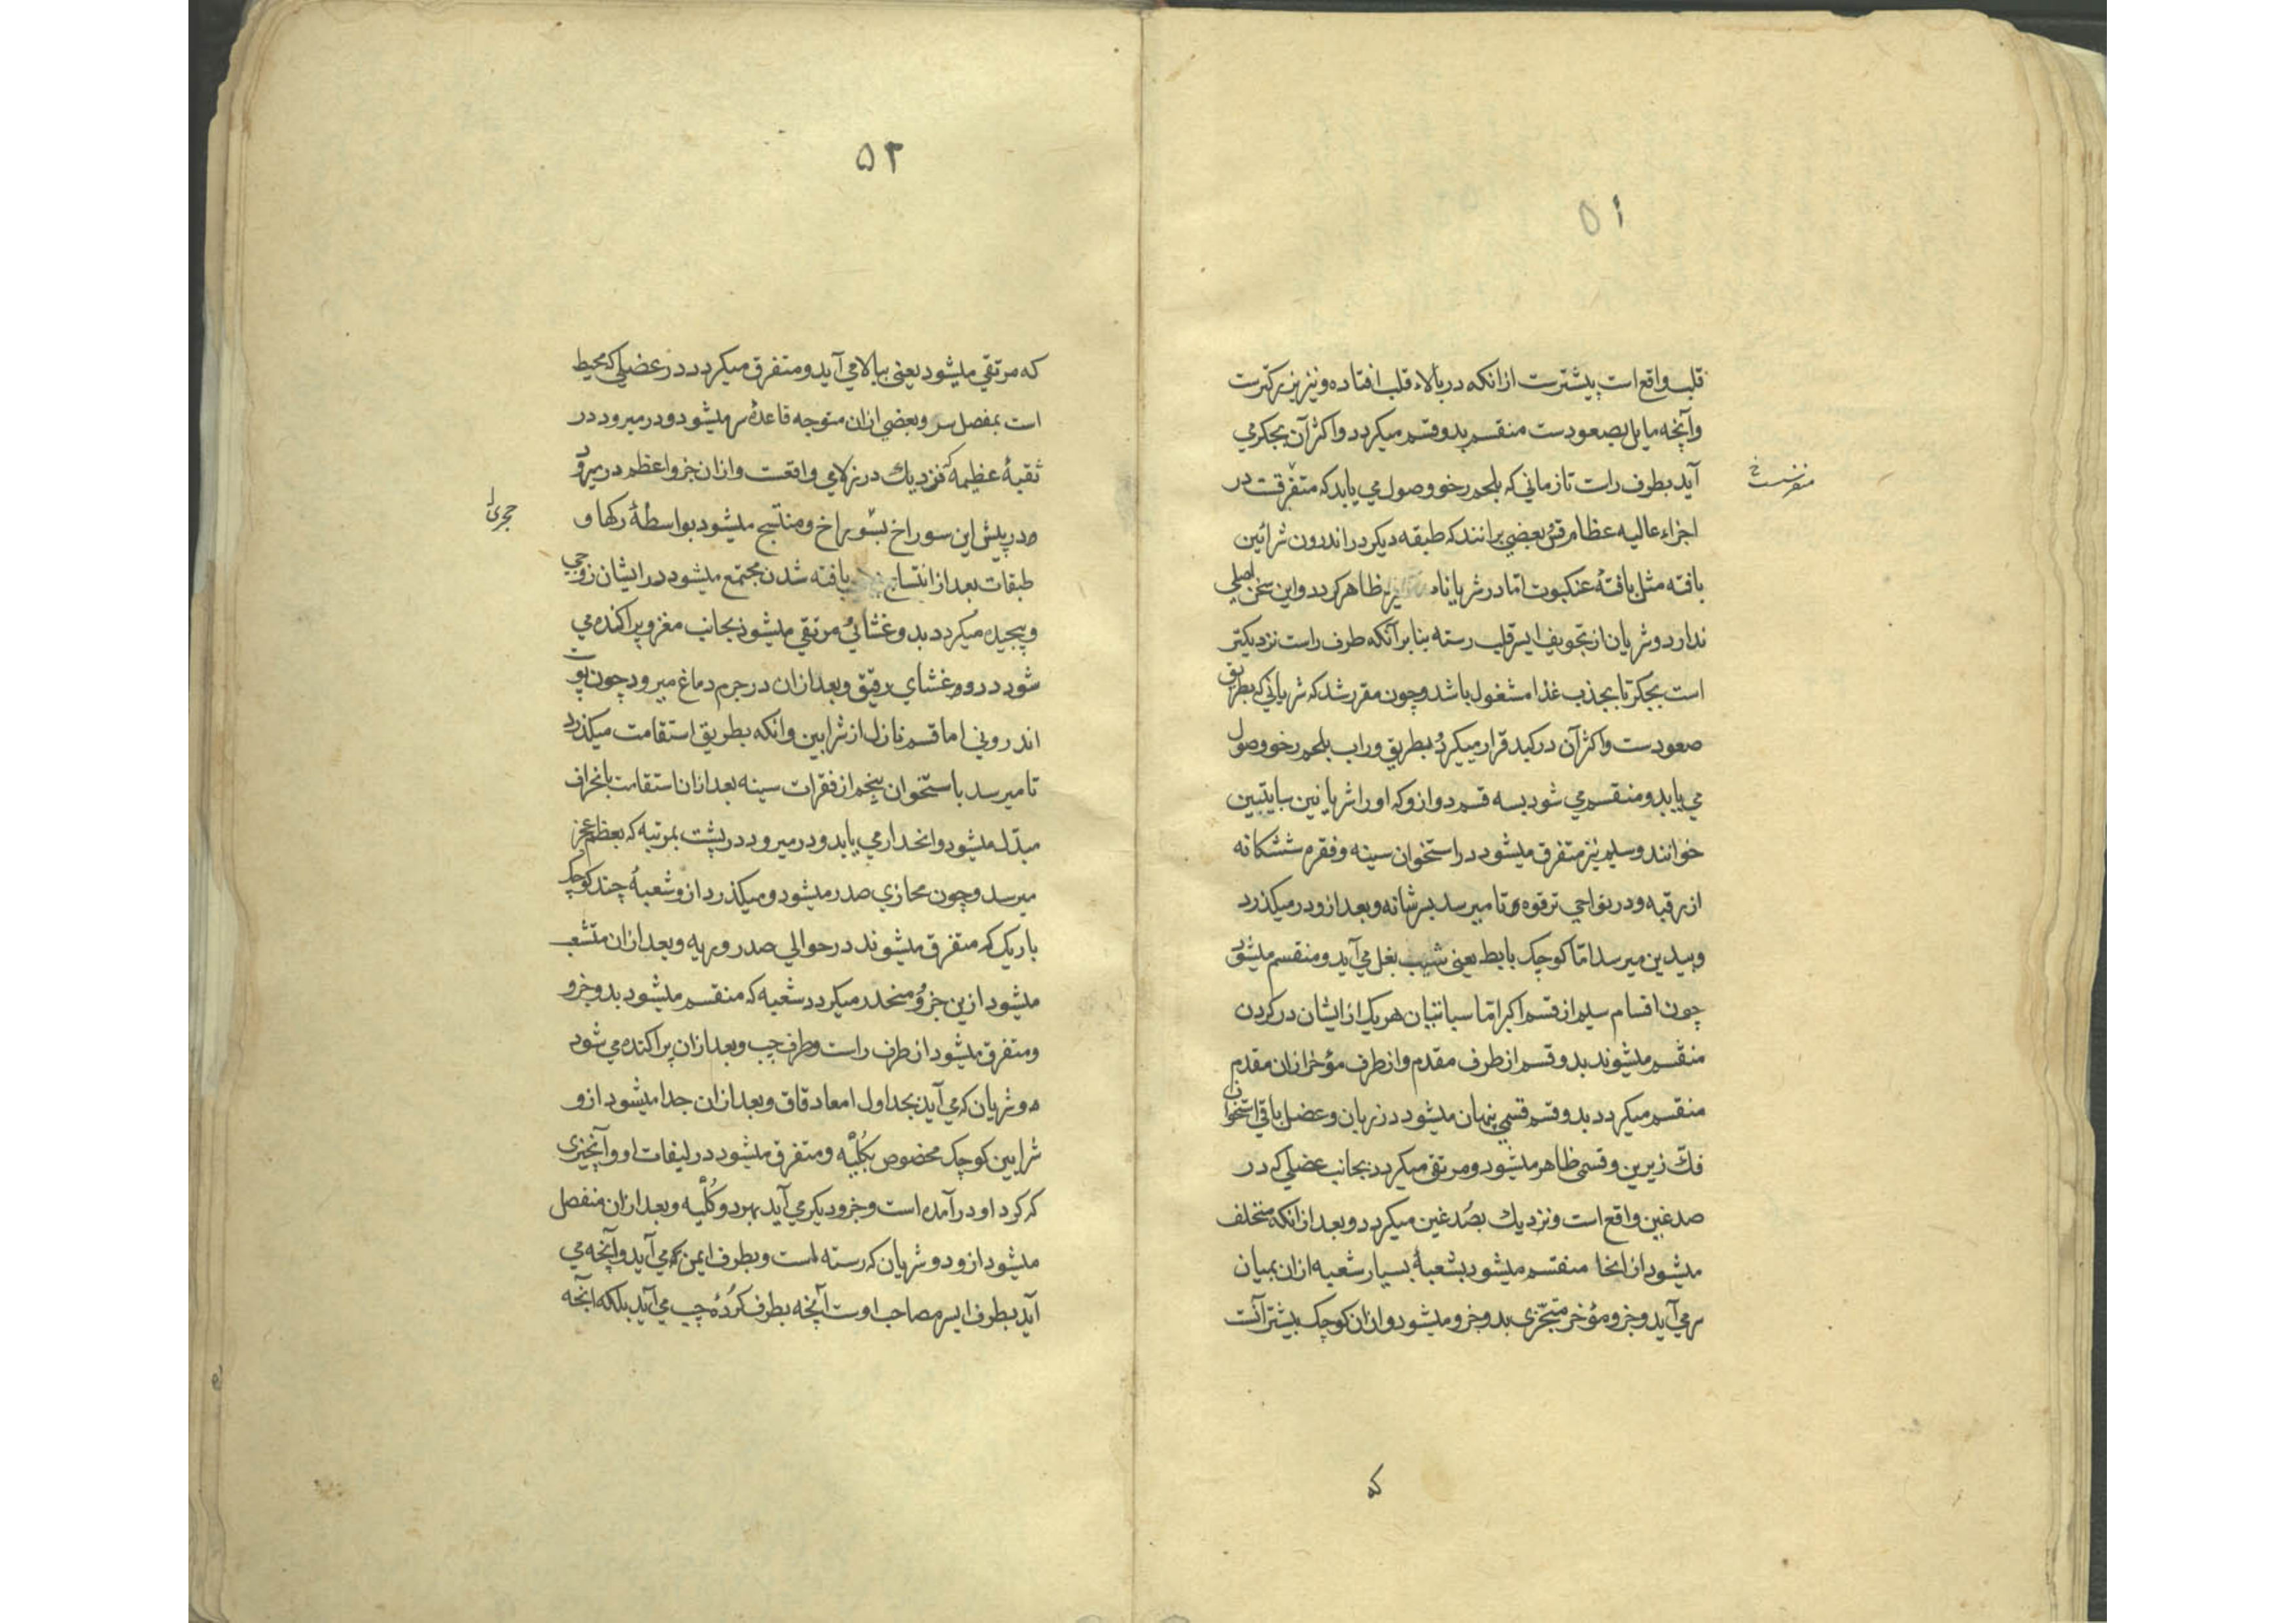 ۵۱
قلب واقع است بیشترست ازانکه در بالاء قلب افتاده ونیز بزرکترست
وآنچه مایل بصعودست منقسم بدو قسم میکردد واکثر آن بجکر می
آید بطرف راست تا زمانی که بلحم رخو وصول می یابد که متفرقست در
اجزاء عالیه عظام قس بعضی برانند که طبقه دیکر در اندرون شرائین
بافته مثل بافتهٔ عنکبوت امّا در شریانات ظاهر کردد واین سخن اصلی
ندارد وشریان از تجویف ایسر قلب رسته بنابر آنکه طرف راست نزدیکتر
است بجکر تا بجذب غذا مشغول باشد وچون مقرر شد که شریانی که بطریق
صعودست واکثر آن در کبد قرار میکیرد بطریق وراب بلحم رخو وصول
می یابد ومنقسم می شود بسه قسم دو ازو که اورا شریانین سباتیین
خوانند وسلیم نیز متفرق میشود در استخوان سینه وفقره ششکانه
از رقبه ودر نواحی ترقوه تا میرسد بسر شانه وبعد ازو در میکذرد
وبیدین میرسد امّا کوچک بابط یعنی بغل می آید ومنقسم میشود
چون اقسام سلیم از قسم اکبر امّا سباتیان هر یک از ایشان در کردن
منقسم میشوند بدو قسم از طرف مقدم واز طرف مؤخر ازان مقدم
منقسم میکردد بدو قسم قسمی پنهان میشود در زبان وعضل باقی استخوان
فک زیرین وقسمی ظاهر میشود ومرتقی میکردد بجانب عضلی که در
صدغین واقع است ونزدیک بصُدغین میکردد وبعد ازانکه متخلف
میشود از انحا منقسم میشود بشعبهٔ بسیار شعبه ازان بمیان
سر می آید وجزو مؤخر متجزی بدو جزو میشود وازان کوچک بیشتر آنست
که
۵۲
که مرتقی میشود یعنی ببالا می آید ومتفرق میکردد در عضلی که محیط
است بمفصل سر وبعضی ازان متوجه قاعدهٔ سر میشود ودر میرود در
ثقبهٔ عظیمه که نزدیک درز لامی واقعست وازان جزو اعظم در میرود
در پیش این سوراخ بسوراخ ومنتسج میشود بواسطهٔ رکها و
طبقات بعد از انتساج بافته شدن مجتمع میشود در ایشان زوجی
وپیچیده میکردد بدو غشائی مرتقی میشود بجانب مغز وپراکنده می
شود درو ودر غشای رقیق وبعد ازان در جرم دماغ میرود چون
اندرونی اما قسم نازل از شرایین وانکه بطریق استقامت میکذرد
تا میرسد باستخوان پنجم از فقرات سینه بعد ازان استقامت بانحراف
مبدّل میشود وانحدار می یابد ودر میرود در پشت بمرتبه که بعظم عجز
میرسد وچون محازی صدر میشود ومیکذرد ازو شعبهٔ چند کوچک
باریک که متفرق میشوند در حوالی صدر وریه وبعد ازان متشعب
میشود ازین جزو منحدر میکردد شعبه که منقسم میشود بدو جزو
ومتفرق میشود از طرف راست وطرف چپ وبعد ازان پراکنده می شود
دو شریان که می آید بجداول امعا دقاق وبعد ازان جدا میشود ازو
شرایین کوچک مخصوص بکُلیّه ومتفرق میشود در لیفات او وآنچیزی
که کرد او در آمده است وجزو دیکر می آید بهر دو کُلیّه وبعد ازان منفصل
میشود ازو دو شریان که رسته است وبطرف ایمن می آید وآنچه می
آید بطرف ایسر مصاحب اوست آنچه بطرف کُردهٔ چپ می آید بلکه آنچه